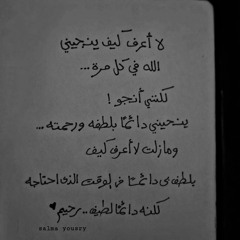 لا أعرف كيف ينجيني
الله في كل مرة...
لكنني أنجو!
ينجيني دائمًا بلطفه ورحمته...
وما زلت لا أعرف كيف
يلطف بي دائمًا في الوقت الذي احتاجه
لكنه دائمًا لطيف.. رحيم♥
salma yousry